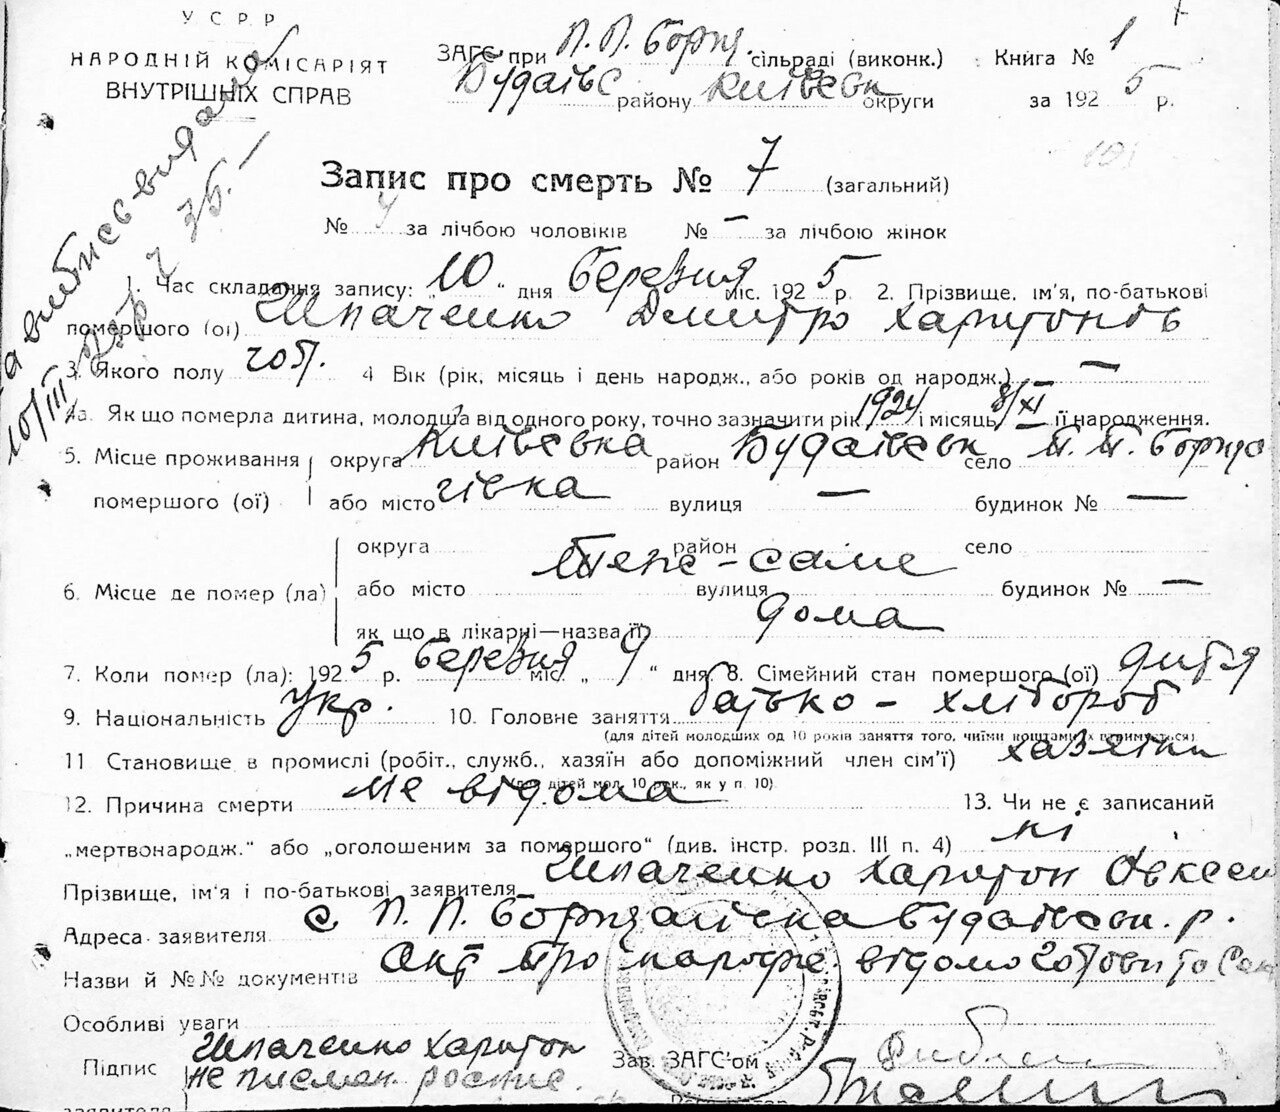 У С Р Р
НАРОДНІЙ КОМІСАРІЯТ
ВНУТРІШНІХ СПРАВ
ЗАГС при П. П. Борщ. сільраді (виконк.) Книга № 1
Будаївс району Київськ округи за 1925 р.
Запис про смерть № 7 (загальний)
№ 4 за лічбою чоловіків № — за лічбою жінок
1. Час складання запису: „10“ дня березня міс. 1925 р. 2. Прізвище, ім'я, по-батькові
помершого (ої) Шпаченко Дмитро Харитонів
3. Якого полу чол. 4 Вік (рік, місяць і день народж., або років од народж.) —
4а. Як що померла дитина, молодша від одного року, точно зазначити рік 1924 і місяць 8/XI її народження.
5. Місце проживання округа Київська район Будаївськ село П. П. Борща
помершого (ої) або місто гівка вулиця — будинок № —
округа район село
Теж-саме
6. Місце де помер (ла) або місто вулиця будинок № —
як що в лікарні—назва її дома
7. Коли помер (ла): 1925 р. березня міс. „9“ дня 8. Сімейний стан помершого (ої) дитя
9. Національність укр. 10. Головне заняття батько - хлібороб
(для дітей молодших од 10 років заняття того, чиїми коштами їх утримується)
11 Становище в промислі (робіт., служб., хазяїн або допоміжний член сім'ї) хазяїн
(для дітей мол. 10 рок., як у п. 10)
12. Причина смерти не відома 13. Чи не є записаний
„мертвонародж.“ або „оголошеним за помершого“ (див. інстр. розд. III п. 4) ні
Прізвище, ім'я і по-батькові заявителя Шпаченко Харитон Овксен
Адреса заявителя с. П. П. Борщагівка Будаївськ. р.
Назви й №№ документів Акт про народж. відомо
Особливі уваги
Підпис Шпаченко Харитон Зав. ЗАГС'ом
не письмен.
заявителя
10/III
35.—